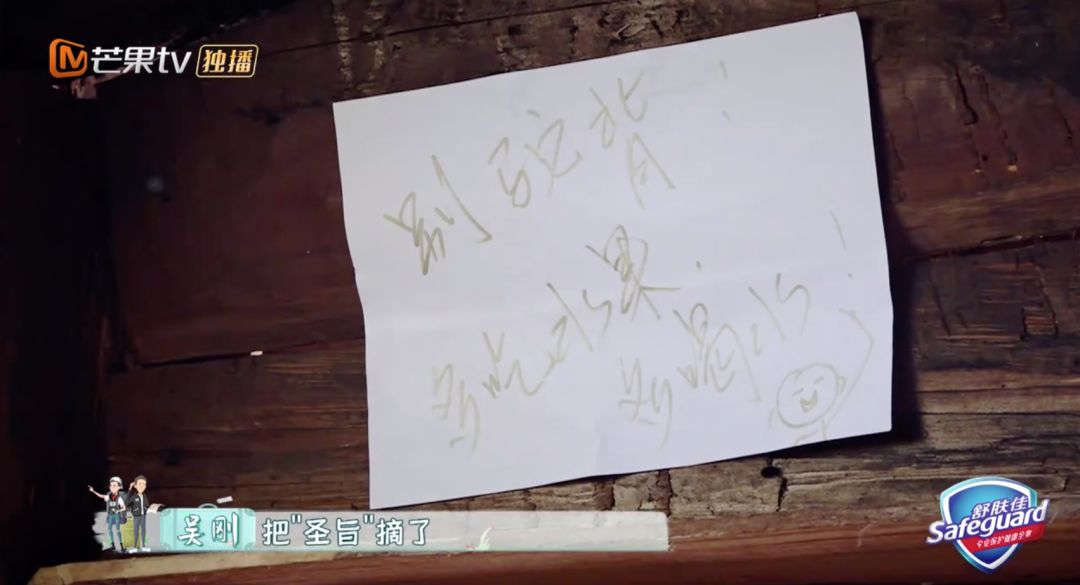 芒果tv 独播
别驼背!
多吃水果.
多喝水!
吴刚 把"圣旨"摘了
舒肤佳
Safeguard
专业保护健康全家